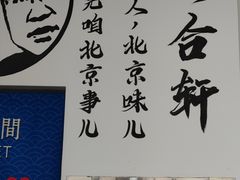 合轩
人，北京味儿
咱北京事儿
間
ET